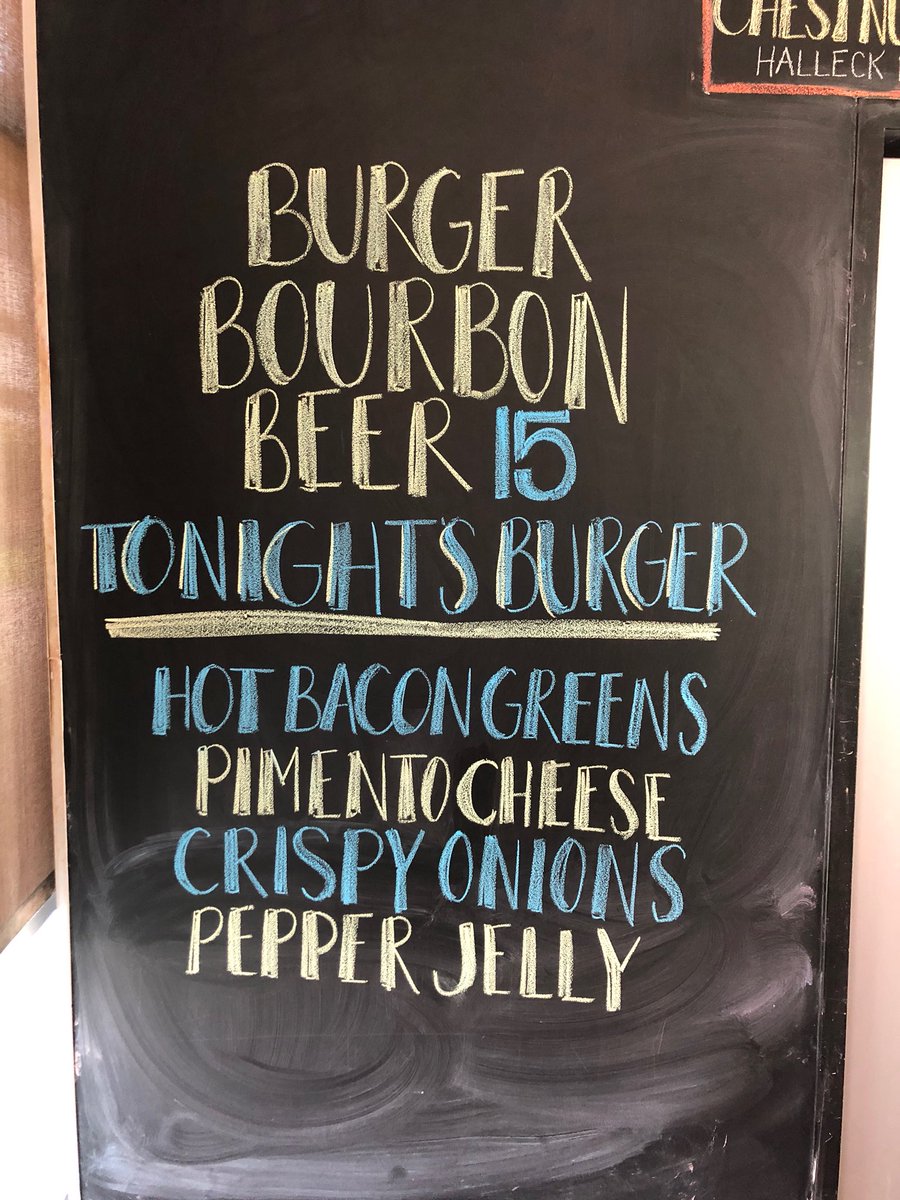 HALLECK
BURGER
BOURBON
BEER 15
TONIGHT'S BURGER
HOT BACON GREENS
PIMENTO CHEESE
CRISPY ONIONS
PEPPER JELLY